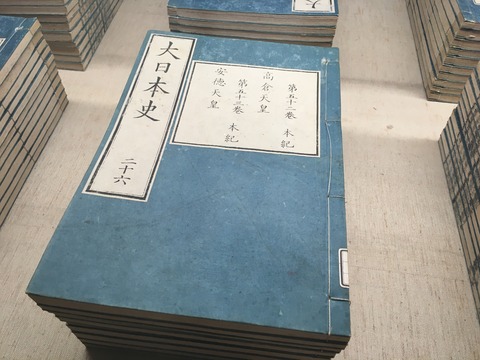 大日本史
二十六
第五十二卷 本紀
高倉天皇
第五十三卷 本紀
安德天皇